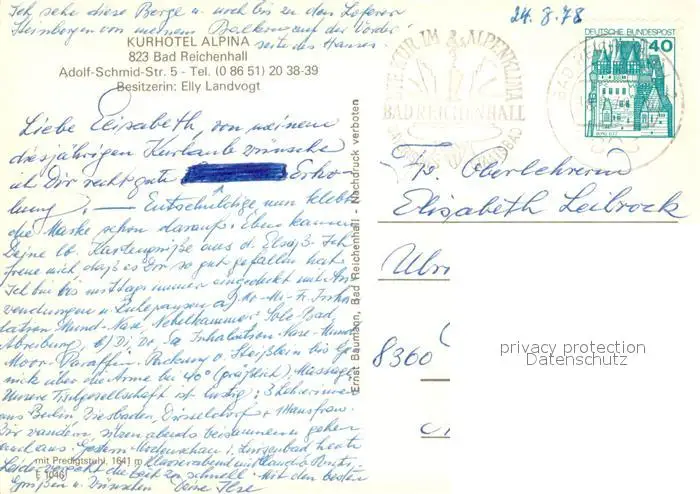 Ich sehe diese Berge u. noch bis zu den Loferer
Steinbergen von meinem Balkon auf der Vorder-
seite des Hauses.
24.8.78
KURHOTEL ALPINA
823 Bad Reichenhall
Adolf-Schmid-Str. 5 - Tel. (0 86 51) 20 38-39
Besitzerin: Elly Landvogt
Liebe Elisabeth, von meinem
diesjährigen Kurlaub wünsche
ich Dir recht gute Erho-
lung! — Entschuldige, nun klebte
die Marke schon darauf. Eben kamen
Deine lb. Kartengrüße aus d. Elsaß. Ich
freue mich, daß es Dir so gut gefallen hat.
Ich bin bis mittags immer eingedeckt mit An-
wendungen u. Ruhepausen a) Mo-Mi-Fr Inha-
lation Mund-Nase, Nebelkammer Sole-Bad,
Abreibung, b) Di, Do, Sa Inhalation Nase-Mund
Moor-Paraffin-Packung v. Steißbein bis Ge-
nick über die Arme bei 40° (gräßlich), Massage.
Unsere Tischgesellschaft ist lustig: 3 Lehrerinnen
aus Berlin, Wiesbaden, Düsseldorf + 1 Hausfrau.
Wir wandern, sitzen abends beisammen, gehen
auch aus. Gestern Modenschau i. heute
Leider vergeht die Zeit zu schnell. Mit den besten
Grüßen u. Wünschen Deine Ilse
mit Predigtstuhl, 1641 m
E 1046
Ernst Baumann, Bad Reichenhall - Nachdruck verboten
KUR IM ALPENKLIMA
BAD REICHENHALL
DEUTSCHE BUNDESPOST
40
BURG ELTZ
BAD REICHENHALL
Fr. Oberlehrerin
Elisabeth Leibrock
8360
privacy protection
Datenschutz